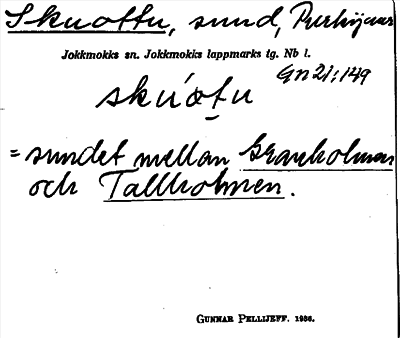 Skuottu, sund, Purkijaur
Jokkmokks sn. Jokkmokks lappmarks tg. Nb l.
Gn 21:149
skúo̯tu
= sundet mellan Granholmen
och Tallholmen.
GUNNAR PELLIJEFF. 1936.